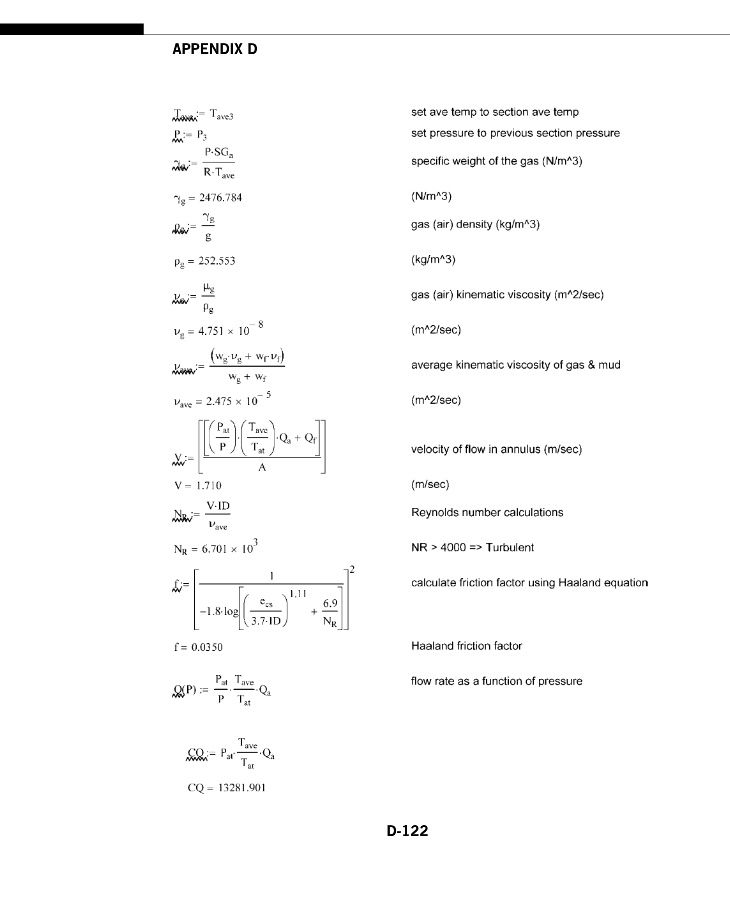 APPENDIX D
T_ave := T_ave3 set ave temp to section ave temp
P := P_3 set pressure to previous section pressure
γ_g := P·SG_a / R·T_ave specific weight of the gas (N/m^3)
γ_g = 2476.784 (N/m^3)
ρ_g := γ_g / g gas (air) density (kg/m^3)
ρ_g = 252.553 (kg/m^3)
ν_g := μ_g / ρ_g gas (air) kinematic viscosity (m^2/sec)
ν_g = 4.751 × 10^-8 (m^2/sec)
ν_ave := (w_g·ν_g + w_f·ν_f) / w_g + w_f average kinematic viscosity of gas & mud
ν_ave = 2.475 × 10^-5 (m^2/sec)
V := [[[(P_at / P)·(T_ave / T_at)·Q_a + Q_f]] / A] velocity of flow in annulus (m/sec)
V = 1.710 (m/sec)
N_R := V·ID / ν_ave Reynolds number calculations
N_R = 6.701 × 10^3 NR > 4000 => Turbulent
f := [1 / -1.8·log[[(e_cs / 3.7·ID)^1.11 + 6.9 / N_R]]]^2 calculate friction factor using Haaland equation
f = 0.0350 Haaland friction factor
Q(P) := P_at / P · T_ave / T_at ·Q_a flow rate as a function of pressure
CQ := P_at· T_ave / T_at ·Q_a
CQ = 13281.901
D-122